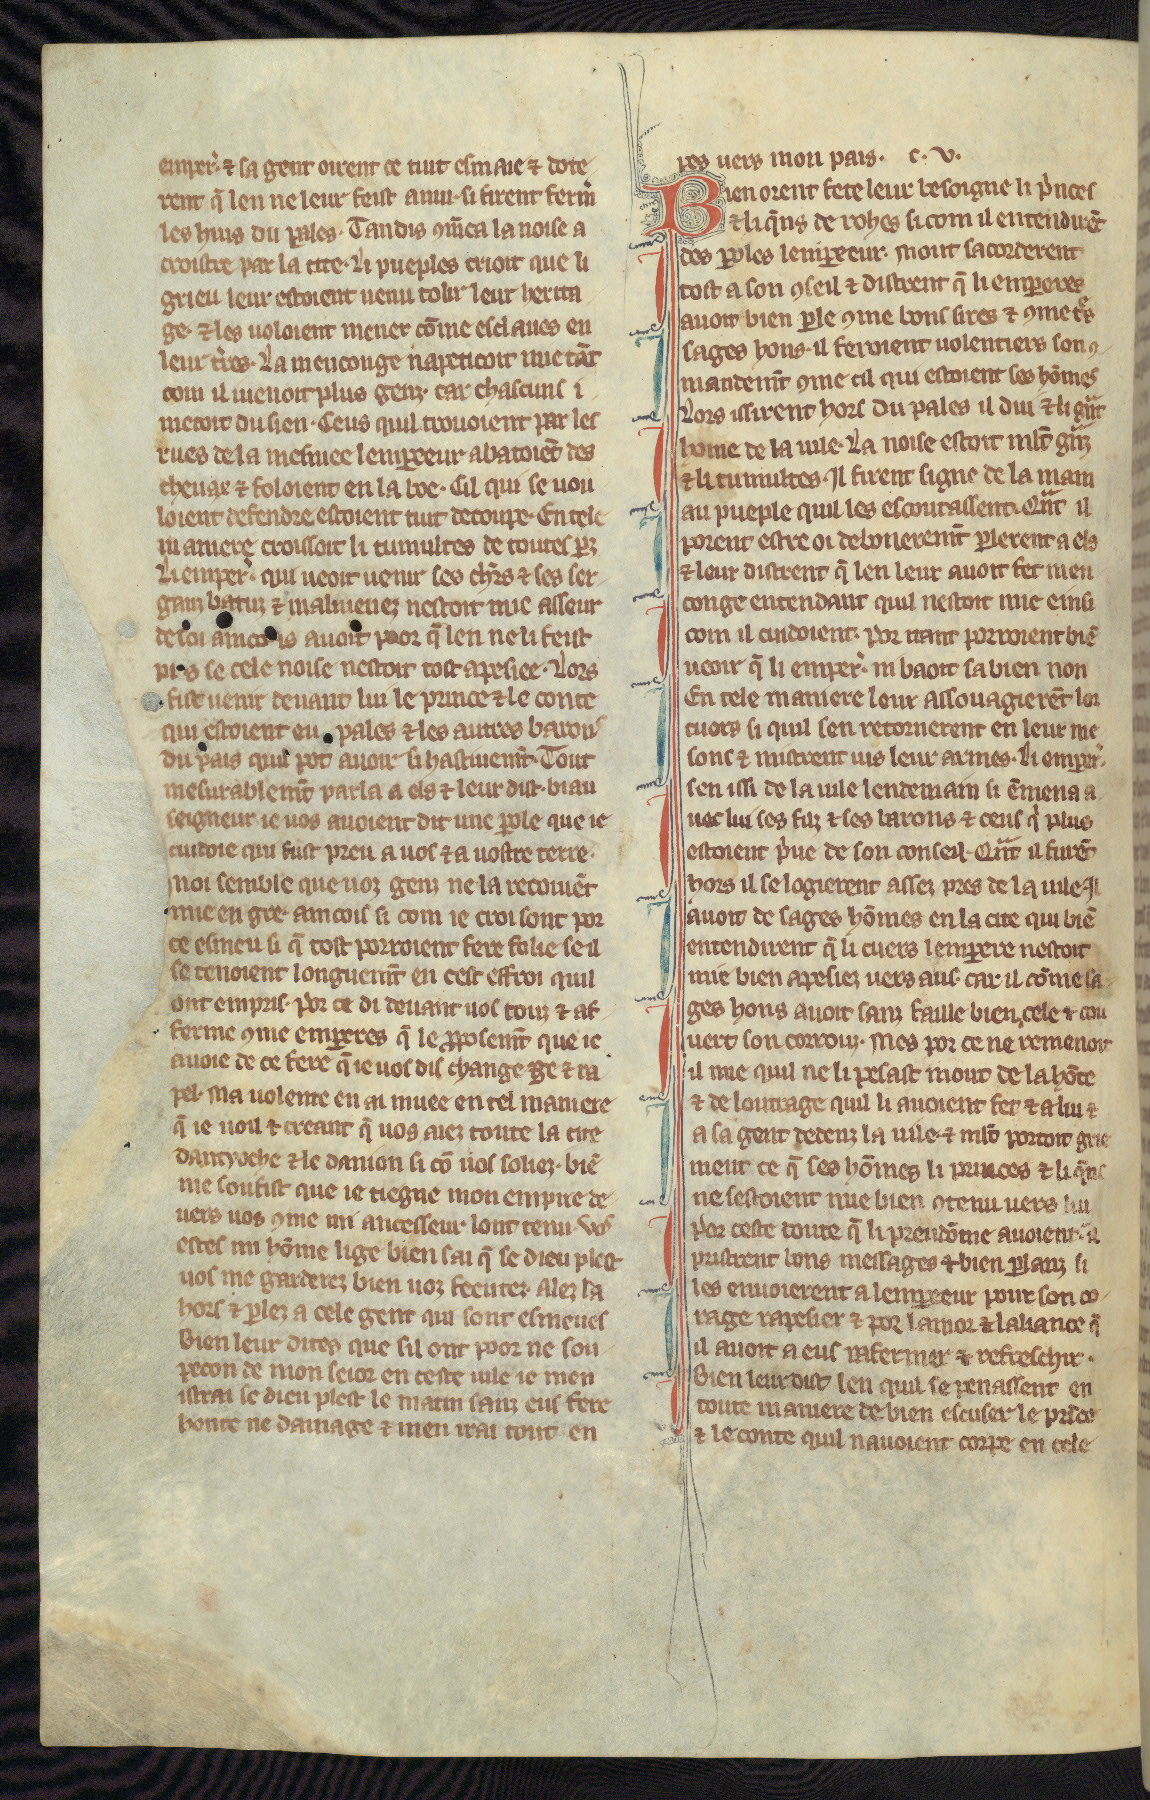 emper̕. ⁊ sa gent oirent ce tuit esmaie ⁊ dote
rent q̃ len ne leur feist anui. si firent ferm̃
les huis du pales. Tandis ꝯm̃ca la noise a
croistre par la cite. Li pueples crioit que li
grieu leur estoient uenu tolir leur herita
ge. ⁊ les uoloient mener cõme esclaues en
leur t̃res. La menconge napeticoit mie tãt
com il uenoit plus genz. car chascuns i
metoit du sien. Ceus quil trouoient par les
rues de la mesniee lempereur abatoiẽt des
cheuaẹ ⁊ foloient en la boe. Cil qui se uou
loient defendre estoient tuit decoupe. En tele
maniere croissoit li tumultes de toutes ꝑz
Li emper̕. qui ueoit uenir ses ch̃rs ⁊ ses ser
ganz batuz ⁊ malmenez nestoit mie asseur
de soi aincois auoit poor q̃ len ne li feist
pis se cele noise nestoit tost apesiee. Lors
fist uenir deuant lui le prince ⁊ le conte
qui estoient eu pales ⁊ les autres barons
du pais quil pot auoir si hastiuem̃t. Tout
mesurablem̃t parla a els ⁊ leur dist. biau
seigneur ie uos auoient dit une ꝑole que ie
cuidoie qui fust preu a uos ⁊ a uostre terre.
moi semble que uoz genz ne la recoiuẽt
mie en gre. aincois si com ie croi sont por
ce esmeu si q̃ tost porroient fere folie se il
se tenoient longuem̃t en cest effroi quil
ont empris. por ce di deuant uos touz ⁊ af
ferme ꝯme emperes q̃ le ꝓposem̃t que ie
auoie de ce fere q̃ ie uos dis change ge ⁊ ra
pel. Ma volente en ai muee en tel maniere
q̃ ie uoil ⁊ creant q̃ uos aiez toute la cite
dantyoche ⁊ le danion si cõ uos soliez. biẽ
me soufist que ie tiegne mon empire de
uers uos ꝯme mi ancesseur lont tenu. Vos
estes mi hõme lige bien sai q̃ se dieu plest
uos me garderez bien uoz feeutez. Alez la
hors ⁊ ꝑlez a cele gent qui sont esmeues
Bien leur dites que sil ont poor ne sou
pecon de mon seior en ceste uile ie men
istrai se dieu plest le matin sanz eus fere
honte ne damage ⁊ men irai tout en
pes uers mon pais. c. V.
Bien orent fete leur besoigne li p̃nces
⁊ li q̃ns de rohes si com il entendirẽt
des ꝑoles lempereur. Mout sacorderent
tost a son ꝯseil ⁊ distrent q̃ li emperes
auoit bien ꝑle ꝯme bons sires ⁊ ꝯme t̃s
sages hons. il feroient uolentiers son ꝯ
mandem̃t ꝯme cil qui estoient ses hõmes
Lors issirent hors du pales il dui ⁊ li g̃nt
home de la uile. La noise estoit ml̃t g̃nz
⁊ li tumultes. Il firent signe de la main
au pueple quil les escoutassent. Qñt il
porent estre oi debonerem̃t ꝑlerent a els
⁊ leur distrent q̃ len leur auoit fet men
conge entendant quil nestoit mie einsi
com il cuidoient. por itant porroient biẽ
ueoir q̃ li emper̕. ni baoit sa bien non
En tele maniere leur assouagierẽt lor
cuers si quil sen retornerent en leur me
sons ⁊ mistrent ius leur armes. Li emper̕.
sen issi de la uile lendemain si ẽmena a
uec lui ses filz ⁊ ses barons ⁊ ceus q̃ plus
estoient p̃ue de son conseil. Qñt il furẽt
hors il se logierent assez pres de la uile. Il
auoit de sages hõmes en la cite qui biẽ
entendirent q̃ li cuers lempere nestoit
mie bien apesiez uers aus. car il cõme sa
ges hons auoit sanz faille bien cele ⁊ cou
uert son corrouz. Mes por ce ne remenoit
il mie quil ne li pesast mout de la hõte
⁊ de loutrage quil li auoient fet ⁊ a lui ⁊
a sa gent dedenz la uile ⁊ ml̃t portoit grie
ment ce q̃ ses hõmes li princes ⁊ li q̃ns
ne sestoient mie bien ꝯtenu uers lui
Por ceste doute q̃ li preudõme auoient. il
pristrent bons messages ⁊ bien ꝑlanz si
les enuoierent a lempereur pour son co
rage rapesier ⁊ por lamor ⁊ laliance q̃
il auoit a eus rafermer ⁊ refreschir.
Bien leur dist len quil se penassent en
toute maniere de bien escuser le prĩce
⁊ le conte quil nauoient corpe en cele